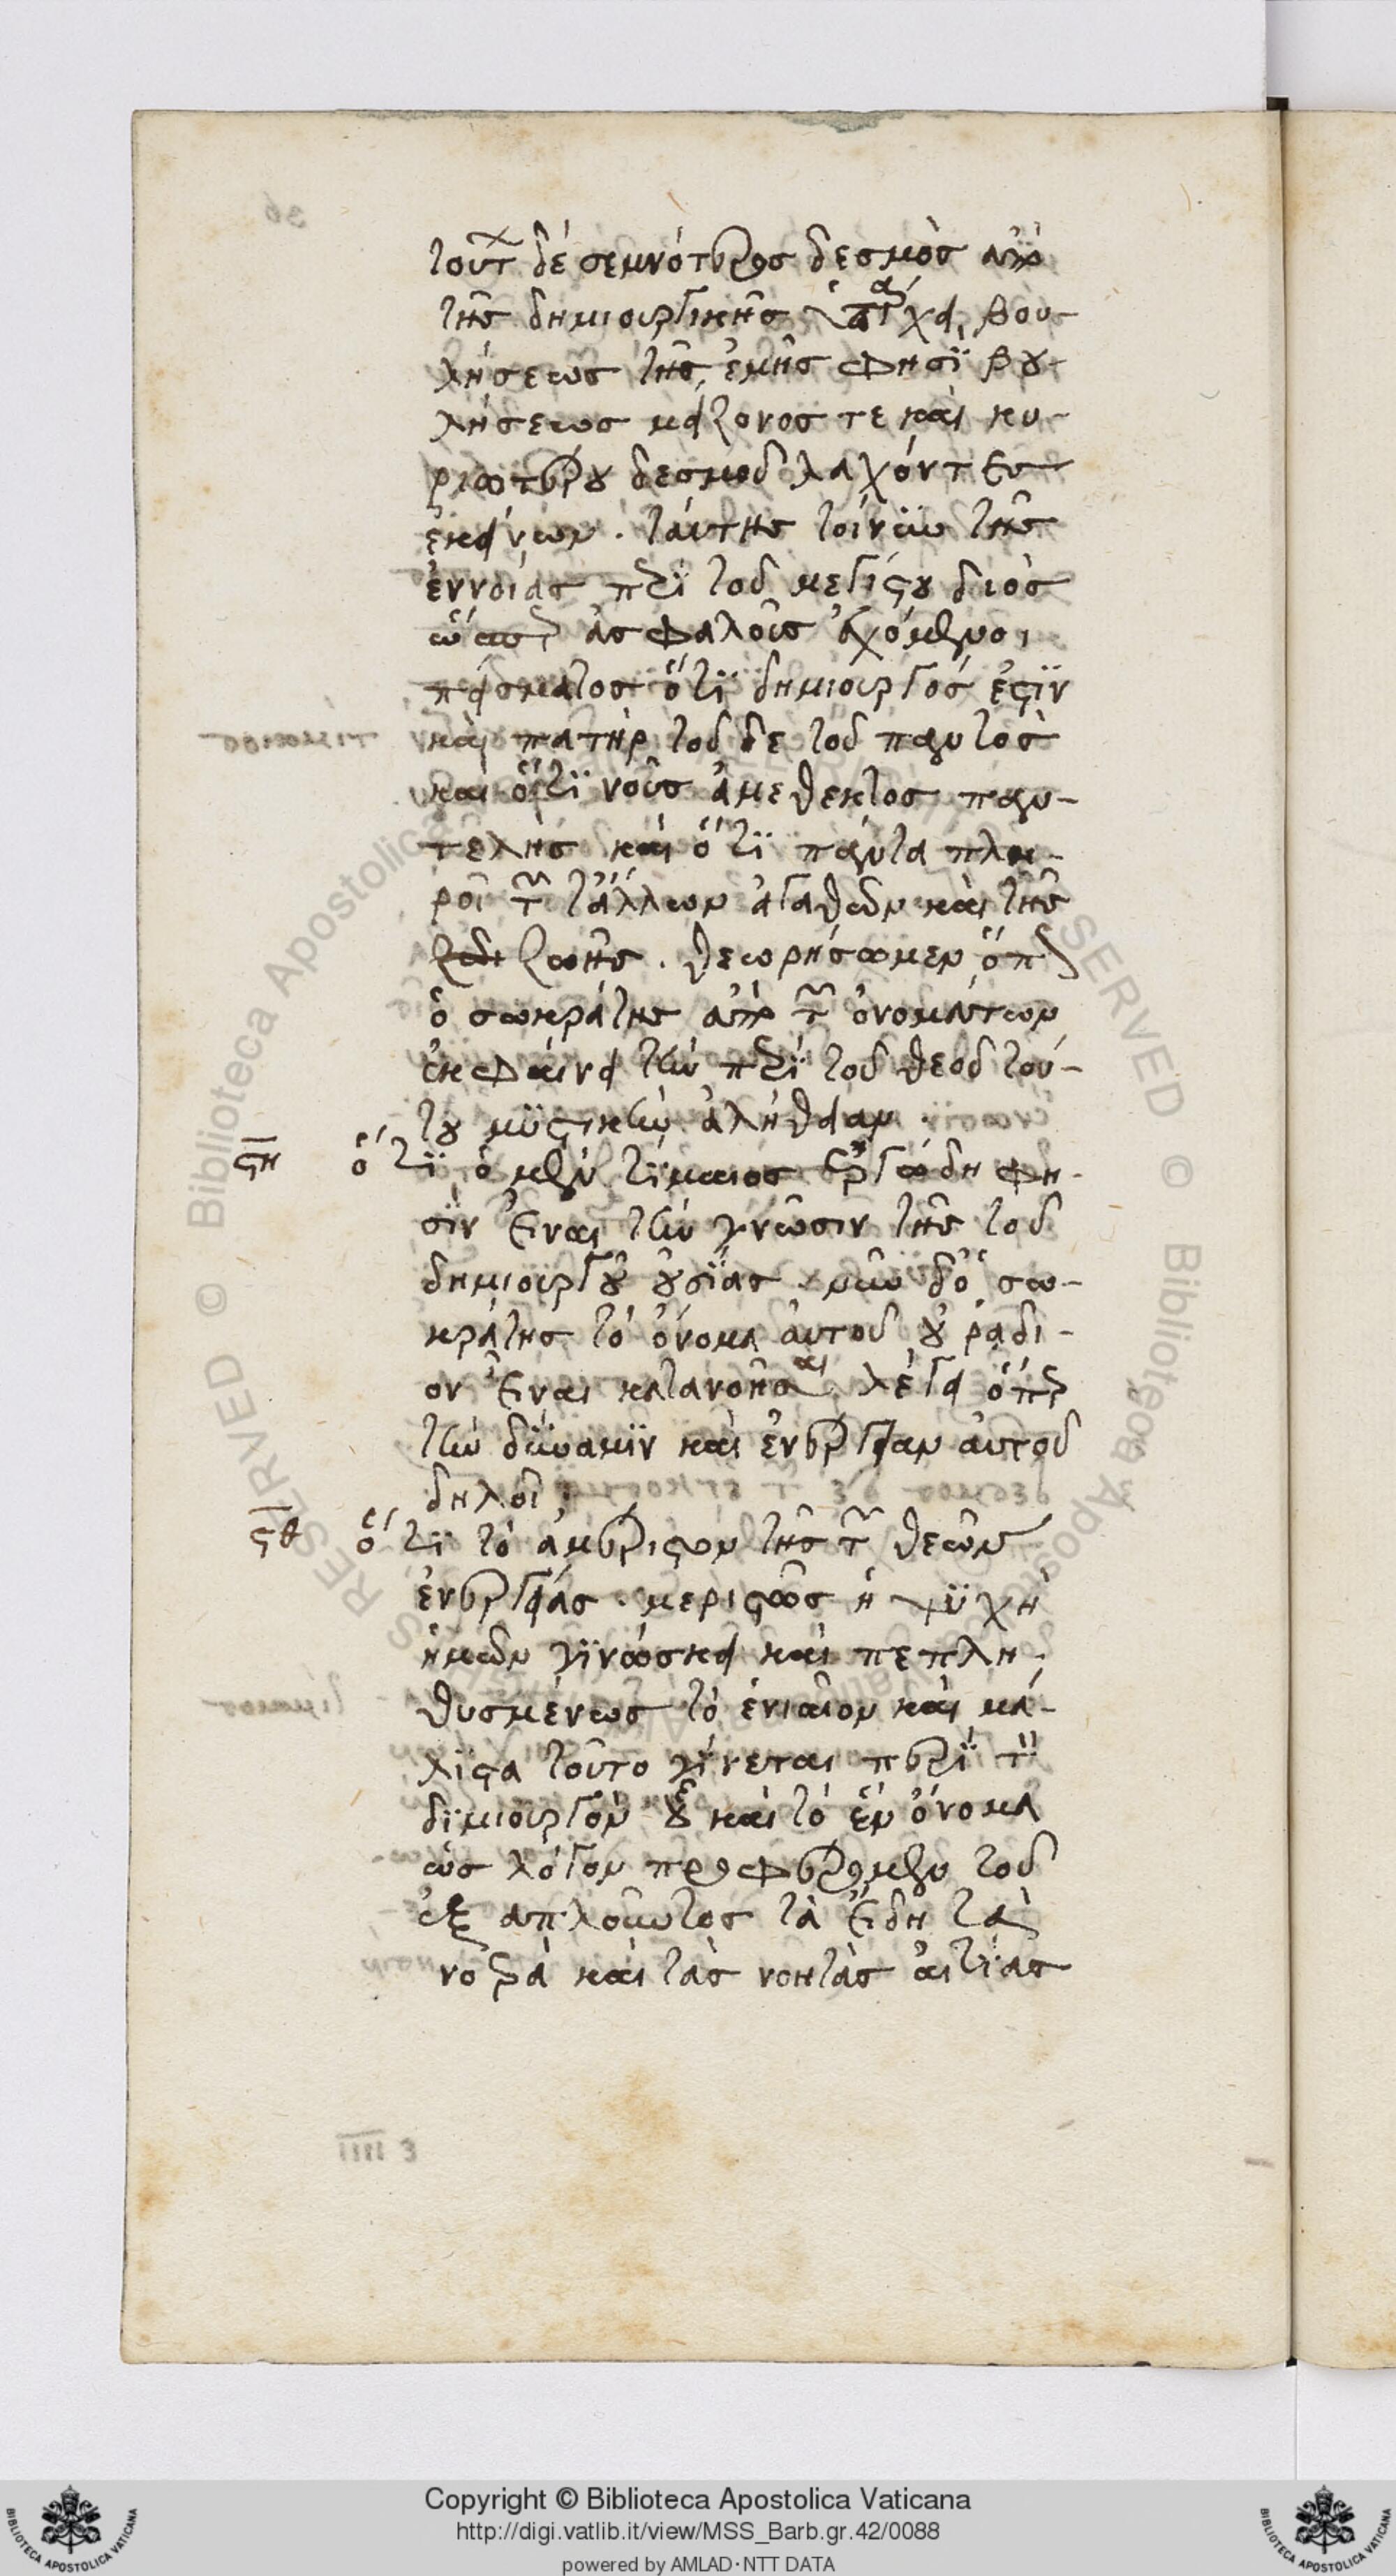 τούτων δὲ σεμνότερος δεσμὸς ἀπὸ
τῆς δημιουργικῆς ὑπάρχει βου-
λήσεως τῆς ἐμῆς φησὶ βου-
λήσεως μείζονος τε καὶ κυ-
ριωτέρου δεσμοῦ λαχόντες
ἐκείνων. ταύτης τοίνυν τῆς
ἐννοίας περὶ τοῦ μεγίστου διὸς
ὥσπερ ἀσφαλοῦς ἐχόμενοι
πείσματος ὅτι δημιουργός ἐστιν
καὶ πατὴρ τοῦδε τοῦ παντὸς
καὶ ὅτι νοῦς ἀμέθεκτος παν-
τελὴς καὶ ὅτι πάντα πλη-
ροῖ τῶν τἄλλων ἀγαθῶν καὶ τῆς
ζωῆς. θεωρήσωμεν ὅπως
ὁ σωκράτης ἀπὸ τῶν ὀνομάτων
ἐκφαίνει τὴν περὶ τοῦ θεοῦ τού-
του μυστικὴν ἀλήθειαν.
ϟη ὅτι ὁ μὲν τίμαιος ἐργώδη φη-
σὶν εἶναι τὴν γνῶσιν τῆς τοῦ
δημιουργοῦ οὐσίας. νῦν δ' ὁ σω-
κράτης τὸ ὄνομα αὐτοῦ οὐ ῥάδι-
ον εἶναι κατανοῆσαι λέγει ὅπερ
τὴν δύναμιν καὶ ἐνέργειαν αὐτοῦ
δηλοῖ.
ϟθ ὅτι τὸ ἀμέριστον τῆς τῶν θεῶν
ἐνεργείας. μεριστῶς ἡ ψυχὴ
ἡμῶν γινώσκει καὶ πεπλη-
θυσμένως τὸ ἑνιαῖον καὶ μά-
λιστα τοῦτο γίνεται περὶ τὸν
δημιουργὸν οὗ καὶ τὸ ἓν ὄνομα
ὡς λόγον προφέρομεν τοῦ
ἐξαπλοῦντος τὰ εἴδη τὰ
νοερὰ καὶ τὰς νοητὰς αἰτίας
Copyright © Biblioteca Apostolica Vaticana
http://digi.vatlib.it/view/MSS_Barb.gr.42/0088
powered by AMLAD·NTT DATA